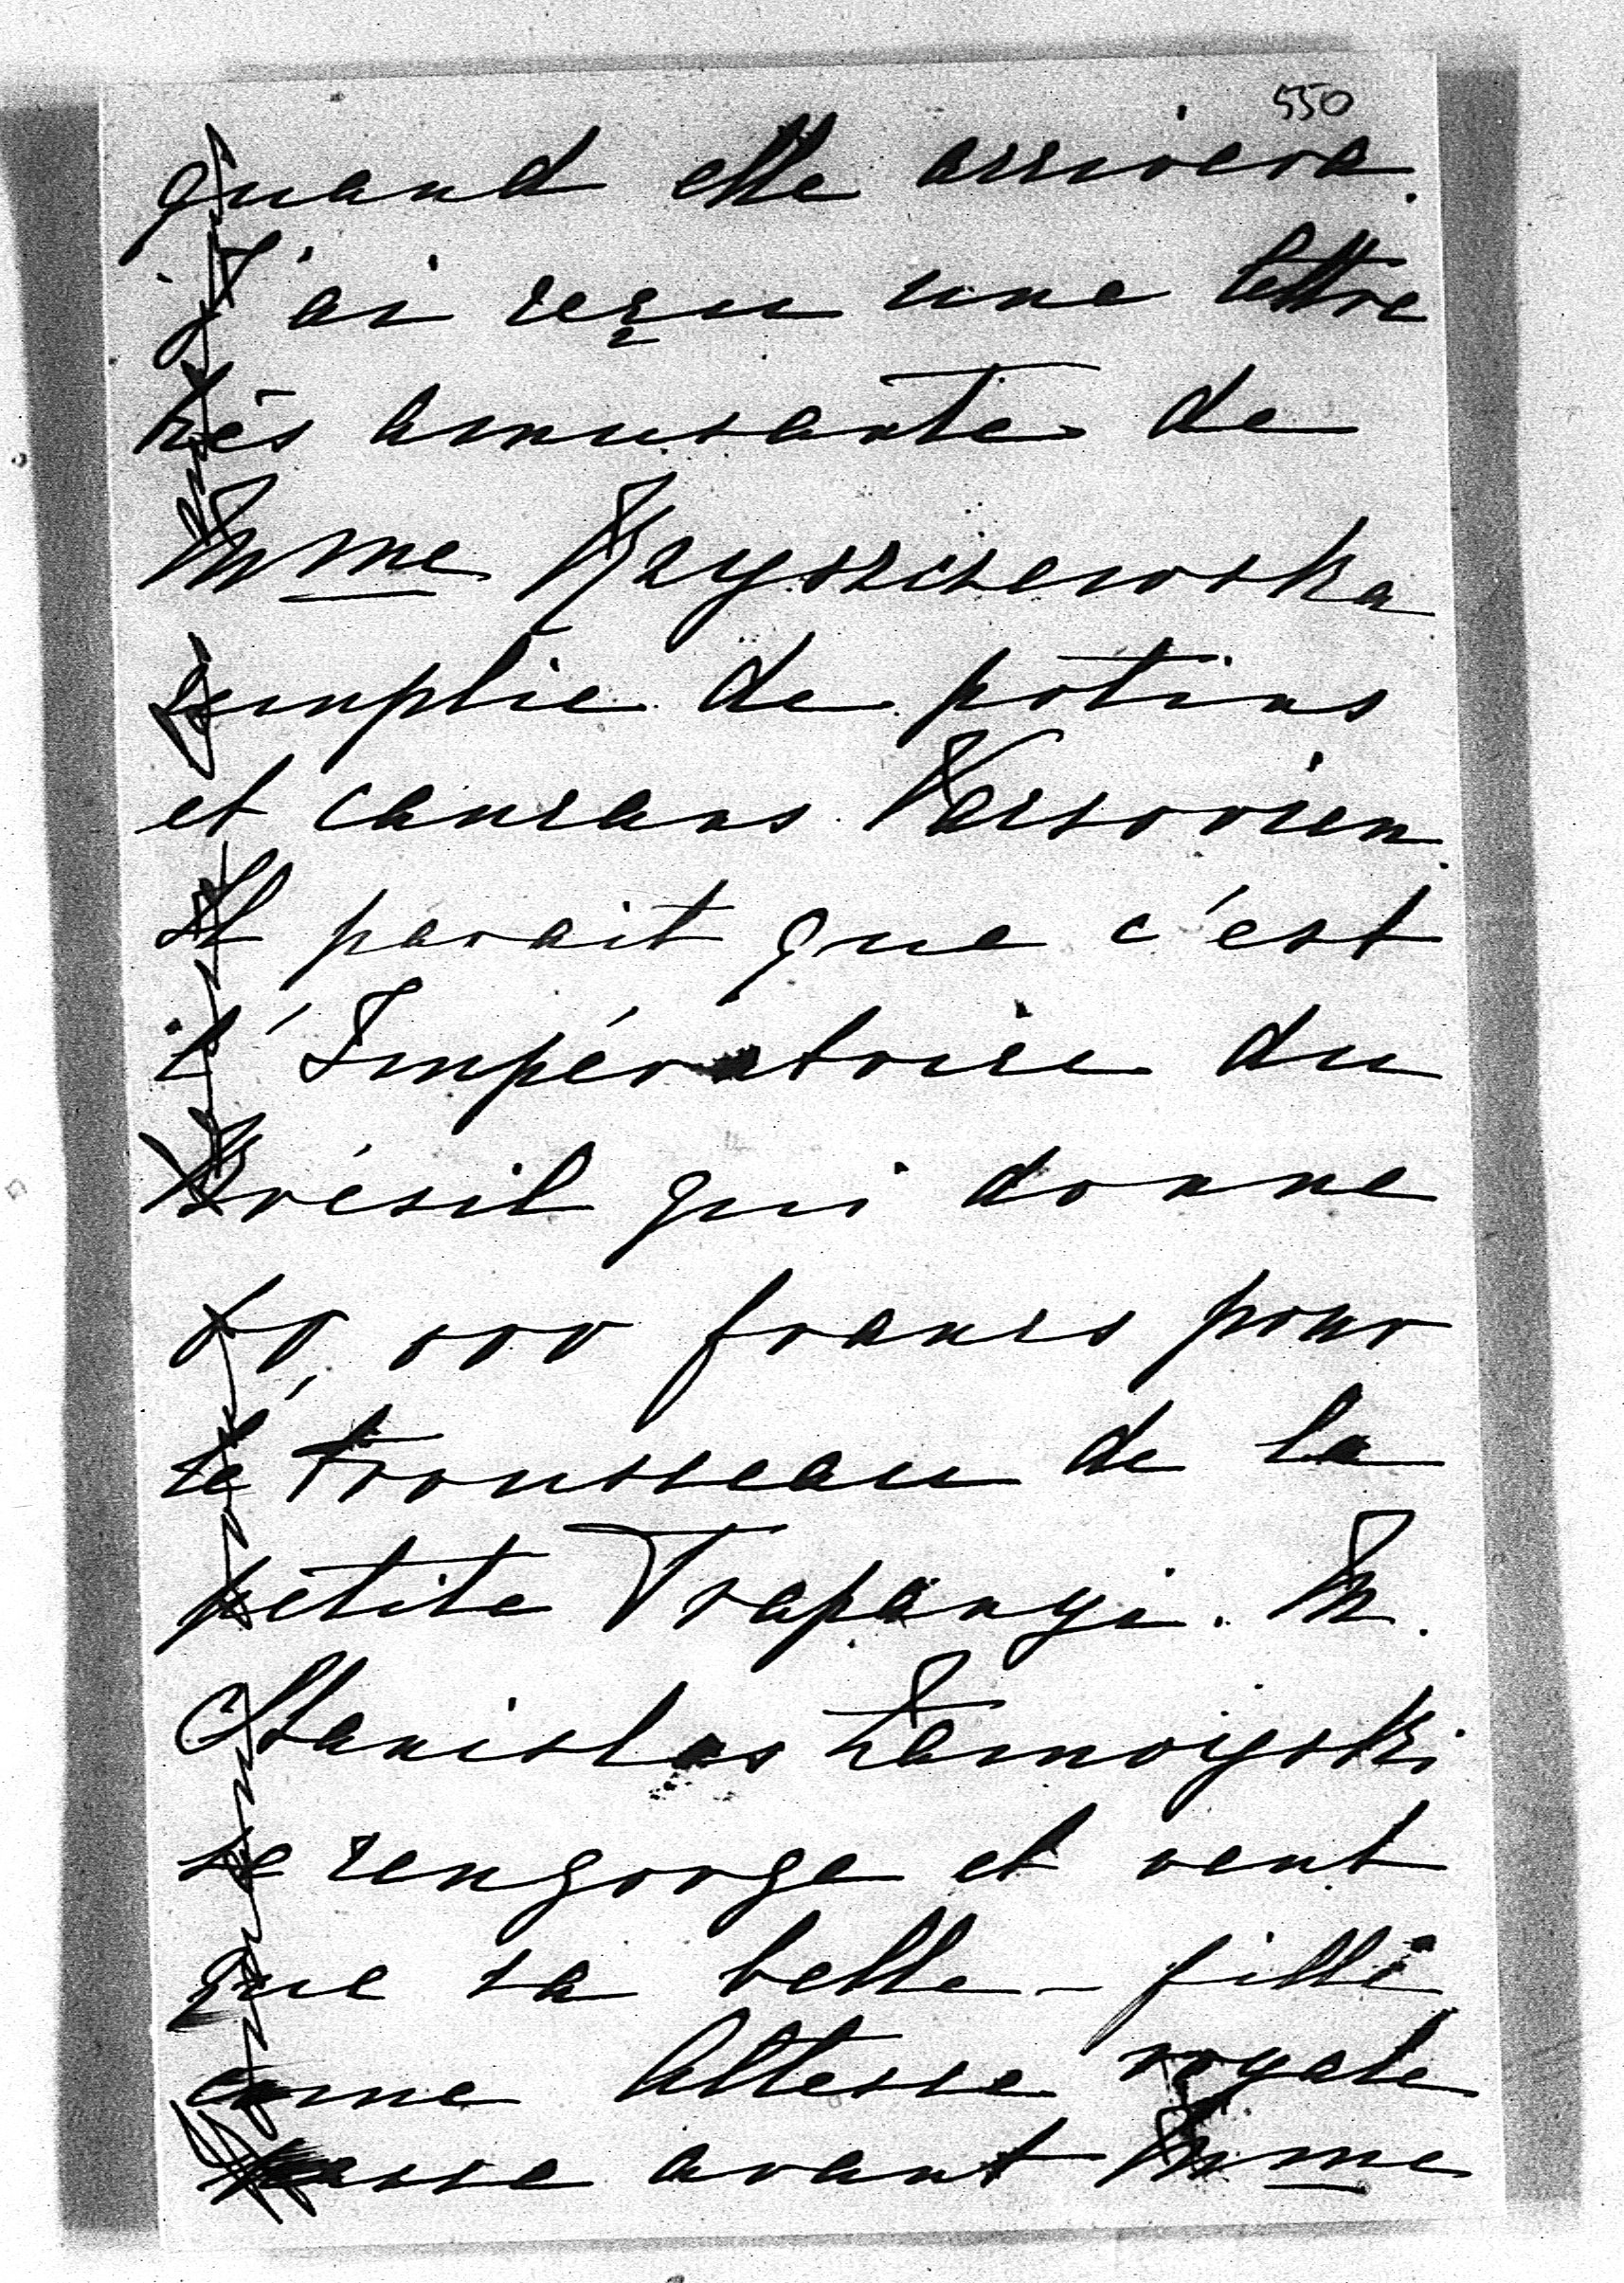 550
quand elle arrivera.
J'ai reçu une lettre
très amusante de
Mme Kryszczewska
remplie de potins
et cancans Varsovien.
Il parait que c'est
l'Impératrice du
Brésil qui donne
40,000 francs pour
le trousseau de la
petite Trapanyi. M.
Stanislas Zamoyski
se rengorge et veut
que sa belle-fille
comme Altesse royale
passe avant Mme